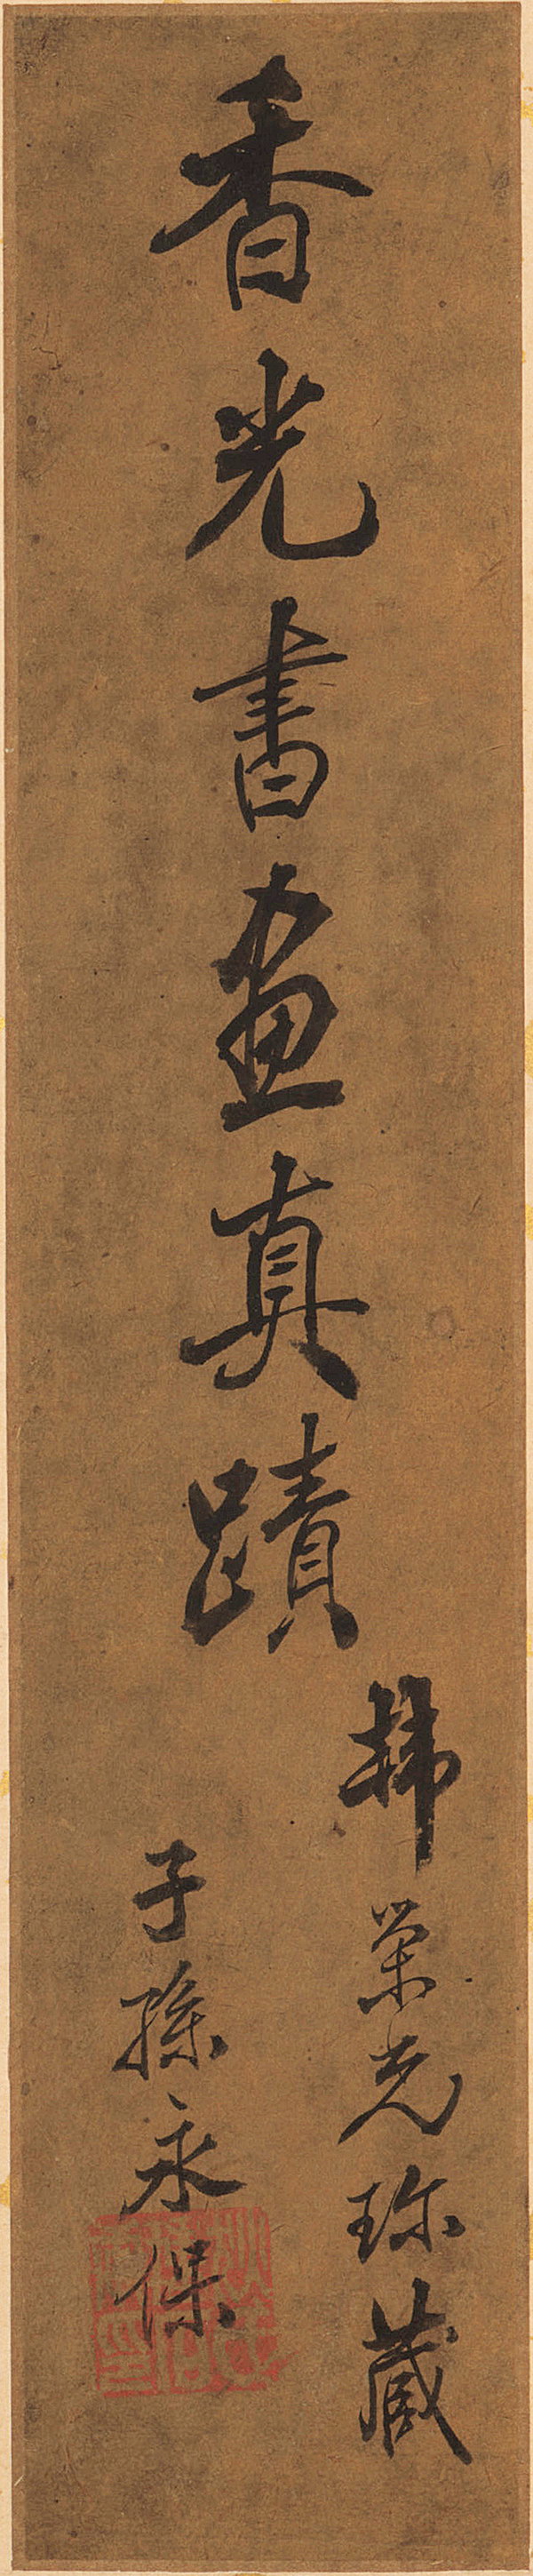 香光書畫真蹟
韓榮光珎藏
子孫永保